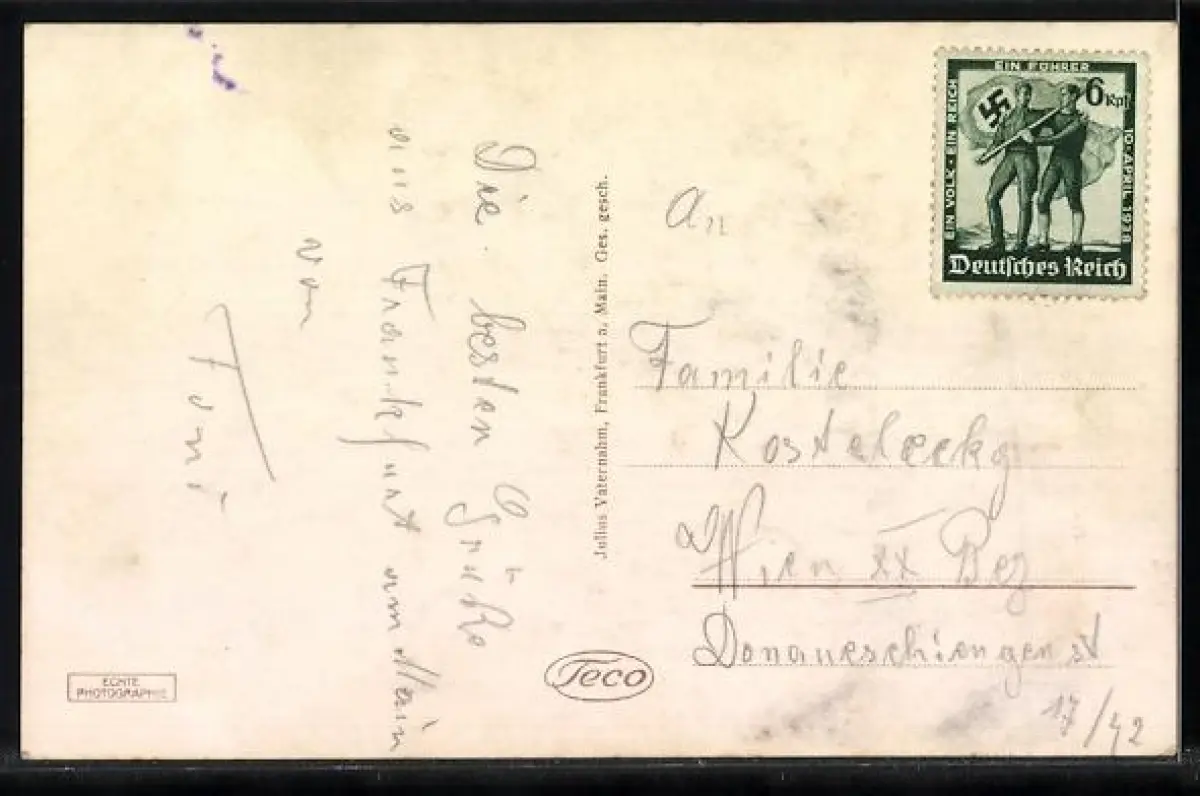 Die besten Grüße
aus Frankfurt am Main
von
Toni
Julius Vaternahm, Frankfurt a. Main. Ges. gesch.
ECHTE
PHOTOGRAPHIE
Teco
EIN VOLK · EIN REICH
EIN FÜHRER
10. APRIL 1938
6 Rpf
Deutsches Reich
An
Familie
Kostelecky
Wien XX Bez
Donaueschiengenst
17/42